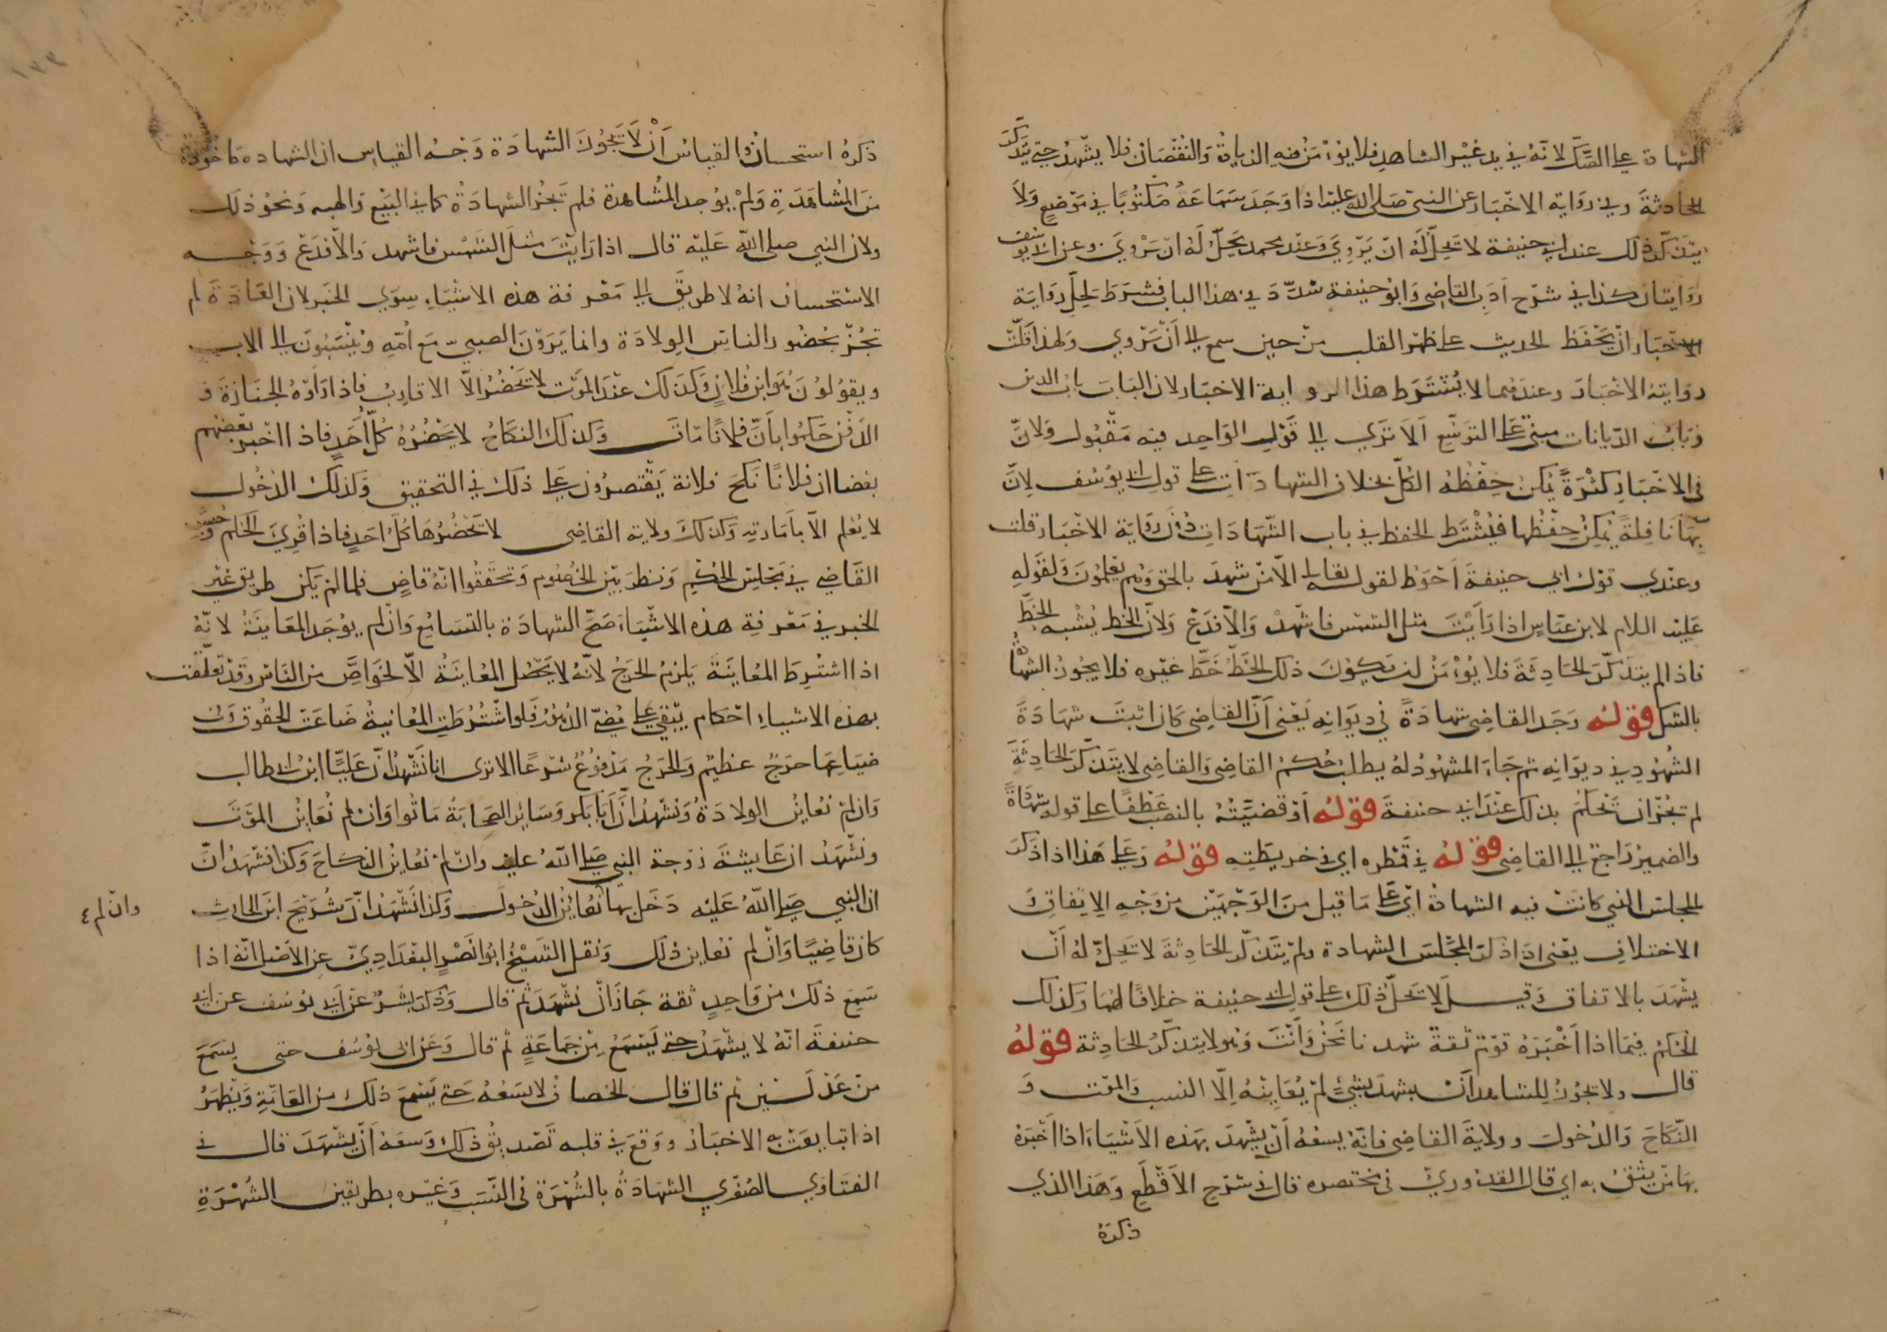 الشهادة على الصك لانه في يد غير الشاهد فلا يؤمن فيه الزيادة والنقصان فلا يشهد حتى يتذكر
الحادثة وفي رواية الاخبار عن النبي صلى الله عليه اذا وجد سماعه مكتوبا في موضع ولا
يتذكر ذلك عند ابي حنيفة لا تحل له ان يروي وعند محمد يحل له ان يروي وعن ابي يوسف
روايتان كذا في شرح ادب القاضي وابو حنيفة شدد في هذا الباب فشرط لحل رواية
الاخبار ان يحفظ الحديث على ظهر القلب من حين سمع الى ان يروي ولهذا قلت
روايته الاخبار وعندهما لا يشترط هذا الرواية الاخبار لان الباب باب الدين
وباب الديانات مبني على التوسع الا ترى الى قول الواحد فيه مقبول ولان
في الاخبار كثرة يمكن حفظه الكل بخلاف الشهادات على قول ابي يوسف لان
بها نافلة يمكن حفظها فيشترط الحفظ في باب الشهادات دون رواية الاخبار قلت
وعندي قول ابي حنيفة احوط لقوله تعالى الا من شهد بالحق وهم يعلمون ولقوله
عليه السلام لابن عباس اذا رأيت مثل الشمس فاشهد والا فدع ولان الخط يشبه الخط
فاذا لم يتذكر الحادثة فلا يؤمن ان يكون ذلك الخط خط غيره فلا يجوز الشهادة
بالشك قوله وجد القاضي شهادة في ديوانه يعني ان القاضي كان اثبت شهادة
الشهود في ديوانه ثم جاء المشهود له يطلب حكم القاضي والقاضي لا يتذكر الحادثة
لم تجز ان تحكم بذلك عند ابي حنيفة قوله او قضيته بالنصب عطفا على قوله شهادة
والضمير راجع الى القاضي قوله في قمطره اي في خريطته قوله وعلى هذا اذا ذكر
المجلس الذي كانت فيه الشهادة اي على ما قيل من الوجهين من وجه الاتفاق
الاختلاف يعني اذا ذكر المجلس الشهادة ولم يتذكر الحادثة لا تحل له ان
يشهد بالاتفاق وقيل لا تحل ذلك على قول ابي حنيفة خلافا لهما وكذلك
الحكم فيما اذا اخبره قوم ثقة شهدنا نحن وانت وهو لا يتذكر الحادثة قوله
قال ولا تجوز للشاهد ان يشهد بشيء لم يعاينه الا النسب والموت و
النكاح والدخول وولاية القاضي فانه يسعه ان يشهد بهذه الاشياء اذا اخبره
بها من يثق به اي قال القدوري في مختصره قال في شرح الاقطع وهذا الذي
ذكره
ذكره استحسان والقياس ان لا تجوز الشهادة وجه القياس ان الشهادة مأخوذة
من المشاهدة ولم يوجد المشاهدة فلم تجز الشهادة كما في البيع والهبه ونحو ذلك
ولان النبي صلى الله عليه قال اذا رايت مثل الشمس فاشهد والا فدع ووجه
الاستحسان انه لا طريق الى معرفة هذه الاشياء سوى الخبر لان العادة لم
تجز بحضور الناس الولادة وانما يرون الصبي مع امه وينسبون الى الاب
ويقولون هو ابن فلان وكذلك عند الموت لا تحضر الا الاقارب فاذا رأوه الجنازة و
الدفن حكموا بأن فلانا مات وكذلك النكاح لا يحضره كل أحد فاذا اخبر بعضهم
بعضا ان فلانا نكح فلانة يقتصرون على ذلك في التحقيق وكذلك الدخول
لا يعلم الا بأمارته وكذلك ولاية القاضي لا تحضرها كل احد فاذا قرئ الحكم وجلس
القاضي في مجلس الحكم ونظر بين الخصوم وتحققوا انه قاض فلما لم يكن طريق غير
الخبر في معرفة هذه الاشياء صح الشهادة بالتسامع وان لم يوجد المعاينة لانه
اذا اشترط المعاينة يلزم الحرج لانه لا يحصل المعاينة الا لخواص من الناس وقد تعلقت
بهذه الاشياء احكام يبقى على مضي الدهور فلو اشترطت المعاينة ضاعت الحقوق وفي
ضياعها حرج عظيم والحرج مدفوع شرعا الا ترى انا نشهد ان عليا ابن ابي طالب
وان لم نعاين الولادة ونشهد ان أبا بكر وسائر الصحابة ماتوا وان لم نعاين الموت
ونشهد ان عايشة زوجة النبي صلى الله عليه وان لم نعاين النكاح وكذا نشهد ان
ان النبي صلى الله عليه دخل بها نعاين الدخول وكذا نشهد ان شريح ابن الحارث
وان لم ٤
كان قاضيا وان لم نعاين ذلك ونقل الشيخ ابو نصر البغدادي عن الاصل انه اذا
سمع ذلك من واحد ثقة جاز ان نشهد ثم قال وذكر بشر عن ابي يوسف عن ابي
حنيفة انه لا يشهد حتى يسمع من جماعة ثم قال وعن ابي يوسف حتى يسمع
من عدلين ثم قال قال الخصاف لا يسعه حتى يسمع ذلك من العامة ويظهر
اذا تتابعت به الاخبار ووقع في قلبه تصديق ذلك وسعه أن يشهد قال في
الفتاوي الصغري الشهادة بالشهرة في النسب وغيره بطريقين الشهرة